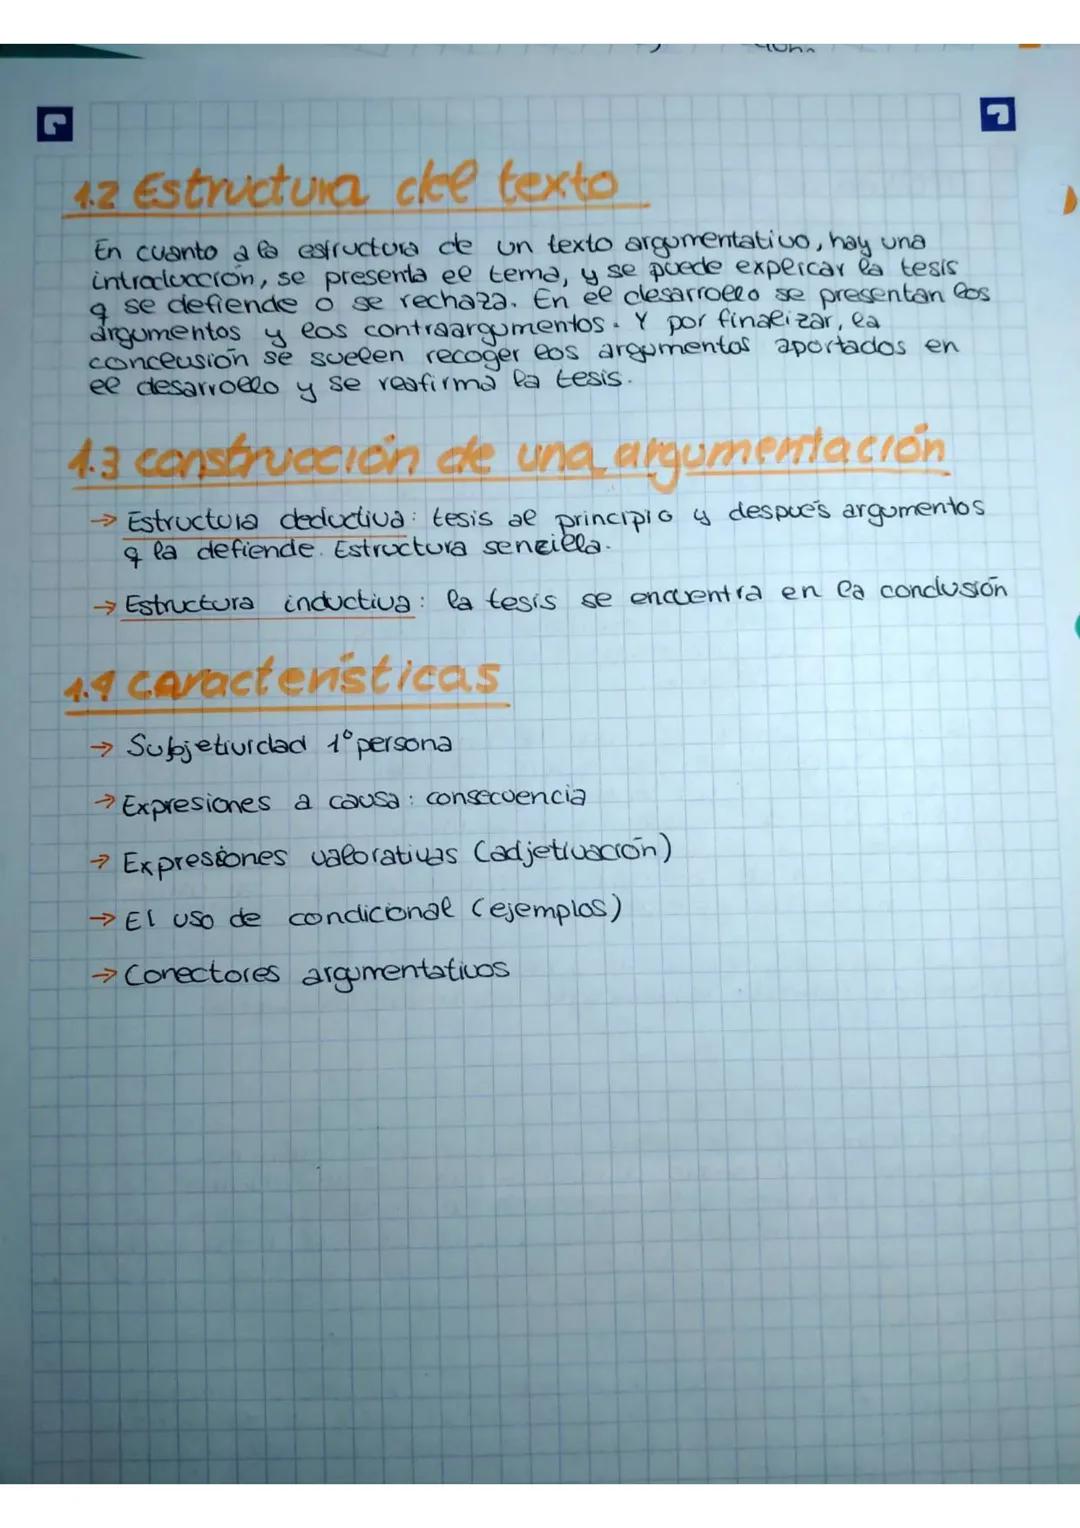 1.2 Estructura del texto
En cuanto a la estructura de un texto argumentativo, hay una
introducción, se presenta el tema, y se puede explicar la tesis
q se defiende o se rechaza. En el desarrollo se presentan los
argumentos y los contraargumentos. Y por finalizar, la
conclusión se suelen recoger los argumentos aportados en
el desarrollo y se reafirma la tesis.
1.3 construcción de una argumentación
→ Estructura deductiva: tesis al principio y después argumentos
q la defiende. Estructura sencilla.
→ Estructura inductiva: la tesis se encuentra en la conclusión
1.4 características
→ Subjetividad 1º persona
→ Expresiones a causa: consecuencia
→ Expresiones valorativas (adjetivación)
→ El uso de condicional (ejemplos)
→ Conectores argumentativos